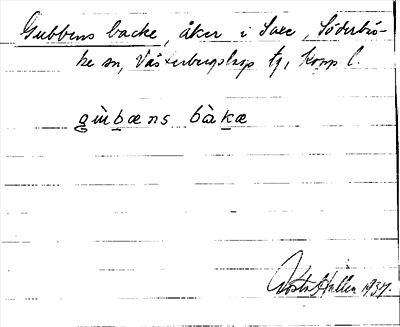 Gubbens backe, åker i Saxe, Söderbär-
ke sn, Västerbergslags tg, Kopp l.
gùbæns bàkæ
Gösta Hallen 1937.